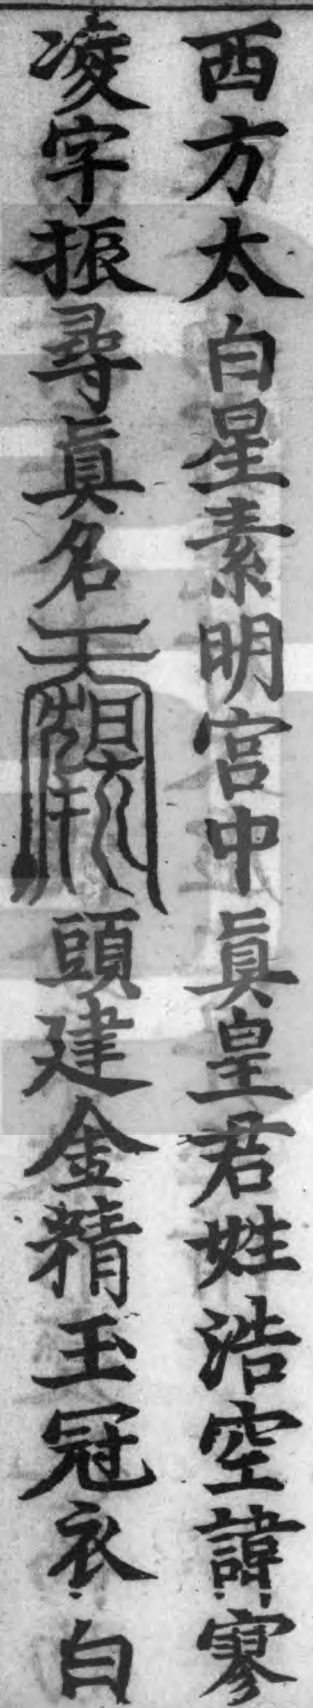 西方太白星素明宮中眞皇君姓浩空諱寥
凌字振尋眞名頭建金精玉冠衣白